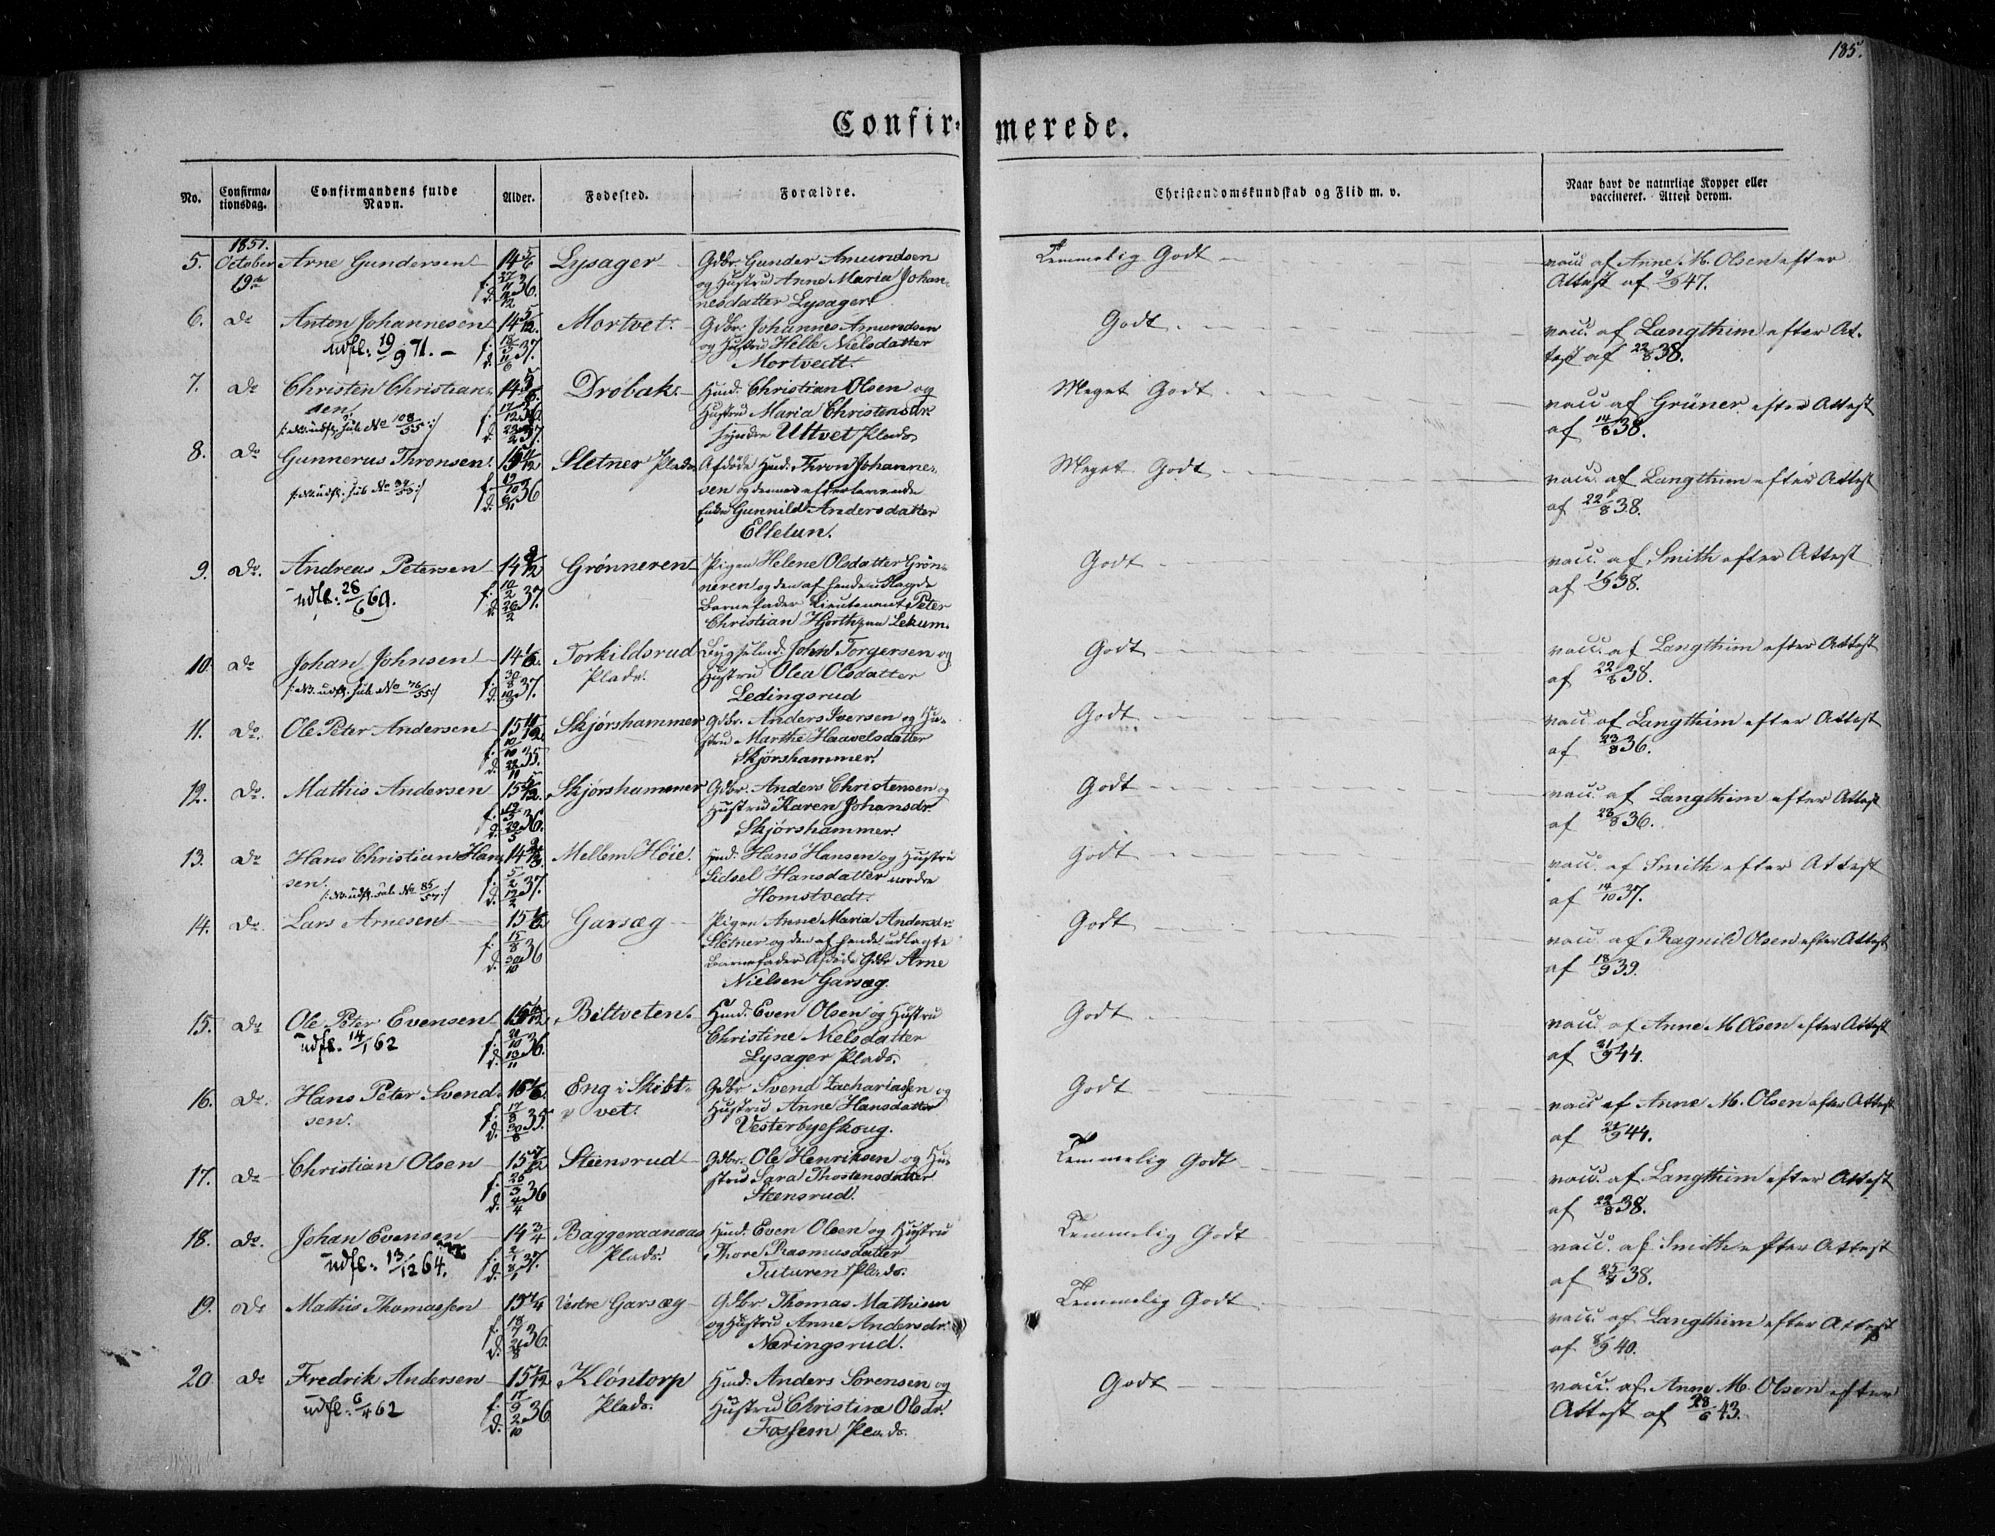 185.
Confir- merede.
No.
Confirma-
tionsdag.
Confirmandens fulde
Navn.
Alder.
Fødested.
Forældre.
Christendomskundskab og Flid m. v.
Naar havt de naturlige Kopper eller
vaccineret. Attest derom.
1851.
5. October Arne Gundersen 14 5/6 Lysager Gdbr. Gunder Amundsen Temmelig Godt vacc. af Anne M. Olsen efter
19de og Hustru Anne Maria Johan- Attest af 9/9 47.
nesdatter Lysager
6. Do Anton Johannesen 14 5/12. Mortvet. Gdbr. Johannes Amundsen Godt vacc. af Langthim efter At-
udfl. 19/9 71. f. 37. og Hustru Helle Nielsdatter test af 22/8 38.
Mortvedt.
7. Do Christen Christian- 14 5/6. Drøbak. Hmd. Christian Olsen og Meget Godt vacc. af Grüner efter Attest
sen. f. 17/12 36. Hustru Maria Christensdr. af 14/8 38.
/: NB. udfl. Jul. No 108/55 :/ d. Syndre Uttvet Plads
8. Do Gunnerus Thronsen. 15 11/12 Sletner Plads Afdøde Hmd. Thron Johanne- Meget Godt vacc. af Langthim efter Attest
f. 19/10 36 sen og dennes efterlevende af 22/8 38.
d. 6/11 Enke Gunnild Andersdatter
Elletun.
9. Do. Andreas Petersen 14 8/12 Grønneren Pigen Helene Olsdatter Grøn- Godt vacc. af Smith efter Attest
udfl. 28/6 69. f. 10/2 37. neren og den af hende udlagde af 1/9 38.
d. 26/2 Barnefader Lieutenant Peter
Christian Hjorth paa Lekum.
10. Do Johan Johnsen 14 1/6. Torkildsrud Leyglend. John Torgersen og Godt vacc. af Langthim efter Attest
/: NB. udfl. Jul. No 76/55 :/ f. 30/8 37. Plads. Hustru Olea Olsdatter af 22/8 38.
Ledingsrud
11. Do. Ole Peter Andersen 15 11/12. Skjørshammer Gdbr. Anders Iversen og Hu- Godt vacc. af Langthim efter Attest
f. 10/10 35. stru Marthe Haavelsdatter af 23/8 36.
d. 22/11 Skjørshammer.
12. Do. Mathis Andersen 15 5/12. Skjørshammer Gdbr. Anders Christensen og Godt vacc. af Langthim efter Attest
f. 36. Hustru Karen Johansdr. af 23/8 36.
d. 29/5 Skjørshammer.
13. Do Hans Christian Han- 14 2/3. Mellem Høie. Hmd. Hans Hansen og Hustru Godt vacc. af Smith efter Attest
sen. f. 5/2 37. Sidsel Hansdatter nordre af 14/10 37.
/: NB. udfl. Jul. No 85/57 :/ d. 12/2 Homstvedt.
14. Do. Lars Arnesen 15 1/6. Garsæg Pigen Anne Maria Andersdr. Godt vacc. af Ragnild Olsen efter Attest
f. 15/8 36 Sletner og den af hende udlagte af 18/9 39.
d. 30/10 Barnefader Afdøde Gdbr. Arne
Nielsen Garsæg.
15. Do Ole Peter Evensen Biltveten. Hmd. Even Olsen og Hustru Godt vacc. af Anne M. Olsen efter Attest
udfl. 14/1 62 f. 20/10 36. Christine Nielsdatter af 21/9 44.
d. 13/11 Lysager Plads.
16. Do. Hans Peter Svend- 16 1/6. Eng i Skibt- Gdbr Svend Zachariassen og Godt vacc. af Anne M. Olsen efter Attest
sen. f. 17/8 35. vet. Hustru Anne Hansdatter af 21/9 44.
d. 30/8 Vesterbyeskoug.
17. Do Christian Olsen 15 7/12 Steensrud Gdbr. Ole Henriksen og Hu- Temmelig Godt vacc. af Langthim efter Attest
f. 25/3 36 stru Sara Thostensdatter af 22/8 38.
d. Steensrud.
18. Do. Johan Evensen 14 3/4 Baggeraanaas Hmd. Even Olsen og Hustru Temmelig Godt vacc. af Smith efter Attest
udfl. 13/12 64. f. 2/1 37. Plads. Thore Rasmusdatter af 25/8 38.
d. 8/1 Tuturen Plads.
19. Do Mathis Thomassen 15 1/4 Vestre Garsæg Gdbr Thomas Mathisen Temmelig Godt vacc. af Langthim efter Attest
f. 18/7 36. og Hustru Anne Andersdr. af 8/9 40.
d. 21/8 Næringsrud.
20. Do Fredrik Andersen 15 1/12 Kløntorp Hmd. Anders Sørensen og Godt vacc. af Anne M. Olsen efter
udfl. 6/4 62 f. 17/9 36 Plads. Hustru Christine Olsdr. Attest af 28/6 43.
d. 2/10 Fossem Plads.